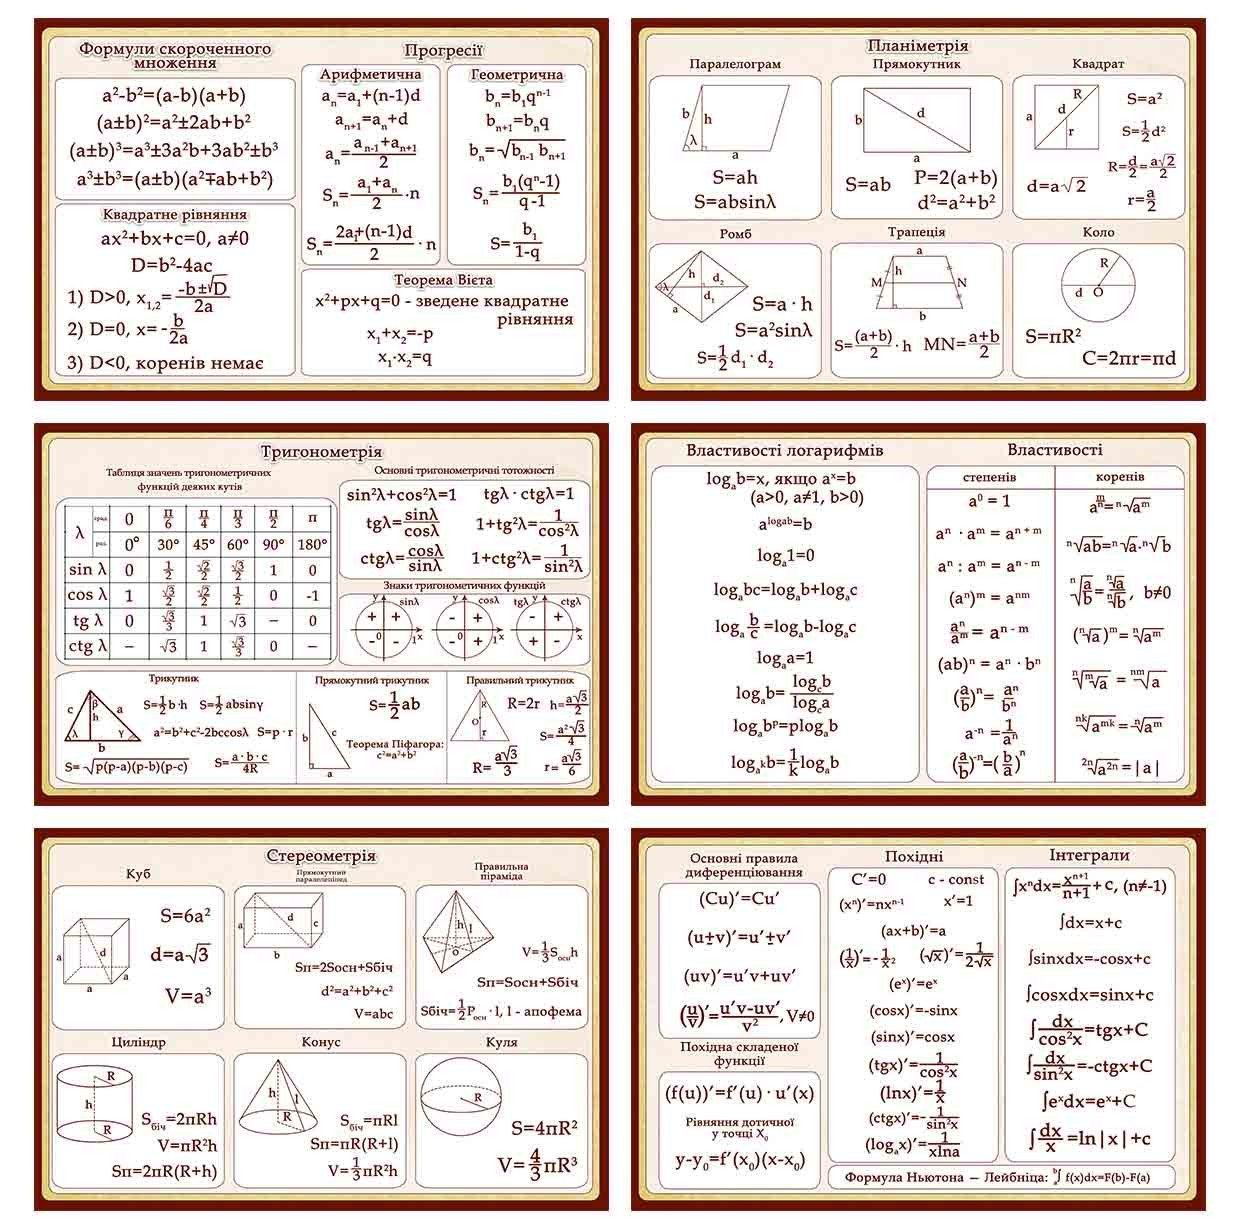 Формули скороченного
множення
a²-b²=(a-b)(a+b)
(a±b)²=a²±2ab+b²
(a±b)³=a³±3a²b+3ab²±b³
a³±b³=(a±b)(a²∓ab+b²)
Квадратне рівняння
ax²+bx+c=0, a≠0
D=b²-4ac
1) D>0, x₁,₂=(-b±√D)/2a
2) D=0, x= -b/2a
3) D<0, коренів немає
Прогресії
Арифметична
aₙ=a₁+(n-1)d
aₙ₊₁=aₙ+d
aₙ=(aₙ₋₁+aₙ₊₁)/2
Sₙ=(a₁+aₙ)/2·n
Sₙ=(2a₁+(n-1)d)/2 · n
Геометрична
bₙ=b₁qⁿ⁻¹
bₙ₊₁=bₙq
bₙ=√(bₙ₋₁ bₙ₊₁)
Sₙ=b₁(qⁿ-1)/(q-1)
S=b₁/(1-q)
Теорема Вієта
x²+px+q=0 - зведене квадратне
рівняння
x₁+x₂=-p
x₁·x₂=q
Планіметрія
Паралелограм
b h λ a
S=ah
S=absinλ
Прямокутник
b d a
S=ab P=2(a+b)
d²=a²+b²
Квадрат
a d R r
S=a²
S=1/2 d²
R=d/2=a√2/2
d=a√2 r=a/2
Ромб
h d₂ λ d₁ a
S=a · h
S=a²sinλ
S=1/2 d₁ · d₂
Трапеція
a h M N b
S=(a+b)/2 · h MN=(a+b)/2
Коло
R d O
S=πR²
C=2πr=πd
Тригонометрія
Таблиця значень тригонометричних
функцій деяких кутів
λ град. 0 π/6 π/4 π/3 π/2 π
рад. 0° 30° 45° 60° 90° 180°
sin λ 0 1/2 √2/2 √3/2 1 0
cos λ 1 √3/2 √2/2 1/2 0 -1
tg λ 0 √3/3 1 √3 – 0
ctg λ – √3 1 √3/3 0 –
Основні тригонометричні тотожності
sin²λ+cos²λ=1 tgλ · ctgλ=1
tgλ=sinλ/cosλ 1+tg²λ=1/cos²λ
ctgλ=cosλ/sinλ 1+ctg²λ=1/sin²λ
Знаки тригонометичних функцій
y sinλ y cosλ tgλ y ctgλ
+ + - + - +
- 0 - 1 x - 0 + 1 x + 0 - x
Трикутник
c β h a λ γ b
S=1/2 b·h S=1/2 absinγ
a²=b²+c²-2bccosλ S=p · r
S=√(p(p-a)(p-b)(p-c)) S=a·b·c/4R
Прямокутний трикутник
b c a
S=1/2 ab
Теорема Піфагора:
c²=a²+b²
Правильний трикутник
R O r
R=2r h=a√3/2
S=a²√3/4
R=a√3/3 r=a√3/6
Властивості логарифмів
logₐb=x, якщо aˣ=b
(a>0, a≠1, b>0)
a^logab=b
logₐ1=0
logₐbc=logₐb+logₐc
logₐ b/c =logₐb-logₐc
logₐa=1
logₐb= log_c b/log_c a
logₐbᵖ=plogₐb
logₐᵏb=1/k logₐb
Властивості
степенів
a⁰ = 1
aⁿ · aᵐ = aⁿ⁺ᵐ
aⁿ : aᵐ = aⁿ⁻ᵐ
(aⁿ)ᵐ = aⁿᵐ
aⁿ/aᵐ = aⁿ⁻ᵐ
(ab)ⁿ = aⁿ · bⁿ
(a/b)ⁿ= aⁿ/bⁿ
a⁻ⁿ =1/aⁿ
(a/b)⁻ⁿ=(b/a)ⁿ
коренів
a^(m/n)=ⁿ√aᵐ
ⁿ√ab=ⁿ√a·ⁿ√b
ⁿ√(a/b)=ⁿ√a/ⁿ√b, b≠0
(ⁿ√a)ᵐ=ⁿ√aᵐ
ⁿ√ᵐ√a = ⁿᵐ√a
ⁿᵏ√aᵐᵏ=ⁿ√aᵐ
²ⁿ√a²ⁿ=|a|
Стереометрія
Куб
a d a a
S=6a²
d=a√3
V=a³
Прямокутний
паралелепіпед
a d c b
Sп=2Sосн+Sбіч
d²=a²+b²+c²
V=abc
Правильна
піраміда
h l o
V=1/3 Sосн h
Sп=Sосн+Sбіч
Sбіч=1/2 Pосн · l, l - апофема
Циліндр
R h R
Sбіч=2πRh
V=πR²h
Sп=2πR(R+h)
Конус
h l R
Sбіч=πRl
Sп=πR(R+l)
V=1/3 πR²h
Куля
R
S=4πR²
V=4/3 πR³
Основні правила
диференціювання
(Cu)′=Cu′
(u±v)′=u′±v′
(uv)′=u′v+uv′
(u/v)′=(u′v-uv′)/v², V≠0
Похідна складеної
функції
(f(u))′=f′(u) · u′(x)
Рівняння дотичної
у точці X₀
y-y₀=f′(x₀)(x-x₀)
Похідні
C′=0 c - const
(xⁿ)′=nxⁿ⁻¹ x′=1
(ax+b)′=a
(1/x)′=-1/x² (√x)′=1/2√x
(eˣ)′=eˣ
(cosx)′=-sinx
(sinx)′=cosx
(tgx)′=1/cos²x
(lnx)′=1/x
(ctgx)′=-1/sin²x
(logₐx)′=1/xlna
Інтеграли
∫xⁿdx=xⁿ⁺¹/n+1 + c, (n≠-1)
∫dx=x+c
∫sinxdx=-cosx+c
∫cosxdx=sinx+c
∫dx/cos²x=tgx+C
∫dx/sin²x=-ctgx+C
∫eˣdx=eˣ+C
∫dx/x=ln|x|+c
Формула Ньютона — Лейбніца: ᵇ∫ₐ f(x)dx=F(b)-F(a)